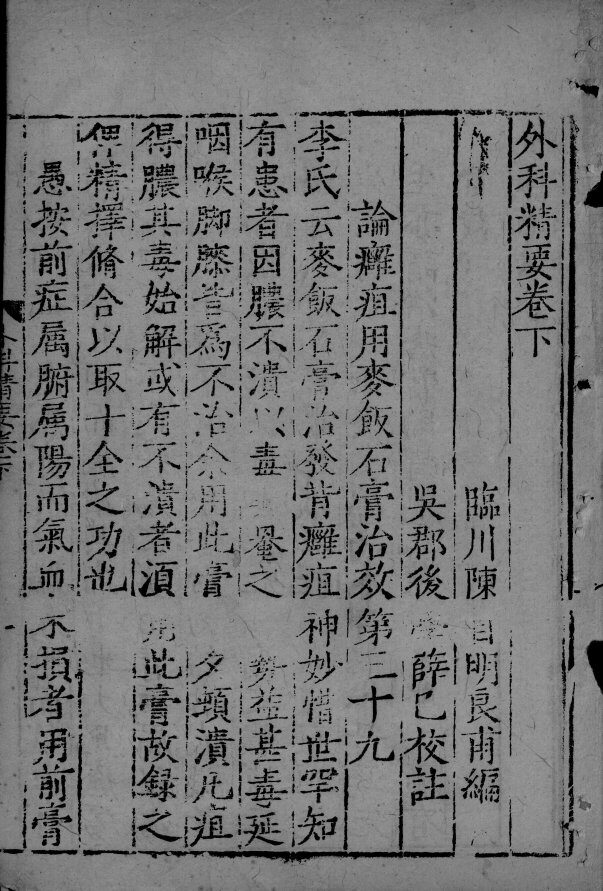 外科精要卷下
臨川陳自明良甫編
吳郡後學薛已校註
論癰疽用麥飯石膏治效第三十九
李氏云麥飯石膏治發背癰疽神妙惜世罕知
有患者因膿不潰以毒掩之勢益甚毒延
咽喉脚膝皆爲不治余用此膏夕頓潰凡疽
得膿其毒始解或有不潰者須用此膏故錄之
俾精擇脩合以取十全之功也
愚按前症属腑属陽而氣血不損者用前膏